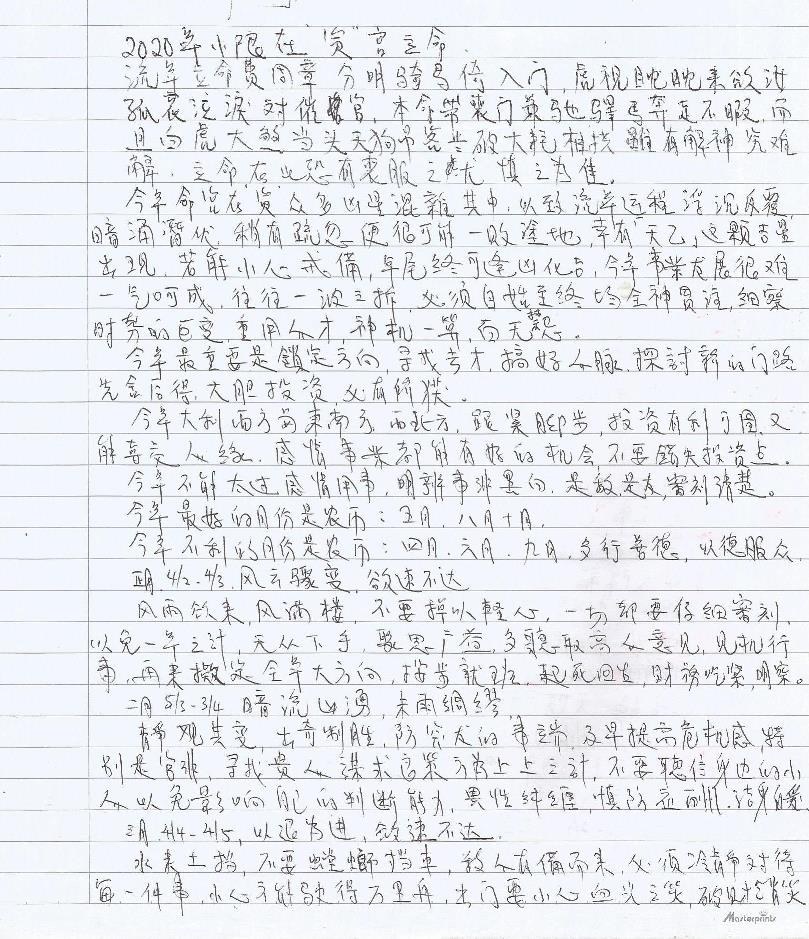 2020年小限在"寅"宫立命.
流年立命费周章 分明骑马倚入门, 虎视眈眈来欲汝
孤衾泣淚对催官, 本命带丧门兼驰驿马奔走不暇, 而
且白虎大煞当头天狗吊客岁破大耗相挠 雖有解神 究难
解. 立命在此恐有丧服之尤 慎之为佳.
今年命宫在"寅"众多凶星混雜其中. 以致流年运程 浮沉反覆,
暗涌潛伏 稍有疏忽 便很可能一败塗地, 幸有"天乙"这颗吉星
出现, 若能小心戒備, 年尾终可逢凶化吉, 今年事業发展很难
一气呵成, 往往一波三折, 必须自始至终 均全神贯注, 细察
时势的巨变 重用人才 神机一算, 而无怨.
今年最重要是鎖定方向, 寻找专才, 搞好人脉. 探討新的门路
先舍后得, 大胆投资, 必有所獲.
今年大利西方 東南方, 西北方, 跟紧脚步, 投资有利可圖, 又
能喜交人缘. 感情事業都能有好的机会, 不要錯失投资点.
今年不能太过感情用事, 明辨事非黑白, 是敌是友, 審刻清楚。
今年最好的月份是农历: 五月. 八月十月.
今年不利的月份是农历: 四月. 六月. 九月, 多行善德, 以德服众.
正月. 4/2 - 4/3. 风云骤变, 欲速不达
风雨欲来, 风满楼, 不要掉以軽心, 一切都要仔细審刻,
以免一年之计, 无从下手, 聚思广益, 多聽取高人意见, 见机行
事, 再来擬定全年大方向, 按步就班, 起死回生, 财務吃紧, 明察。
二月 5/3-3/4 暗流汹湧, 未雨綢繆,
静观其变, 出奇制胜, 防突发的事端, 及早提高危机感, 特
别是官非, 寻找贵人謀求良策 方为上上之計, 不要聽信身边的小
人以免影响自己的判断能力, 異性纠缠, 慎防应酬. 洁身自愛
三月. 4/4 - 4/5, 以退为进, 欲速不达.
水来土挡, 不要螳螂挡車, 敌人有備而来, 必须冷静对待
每一件事, 小心方能駛得万里舟, 出门要小心血光之災, 破财挡災
Masterprints